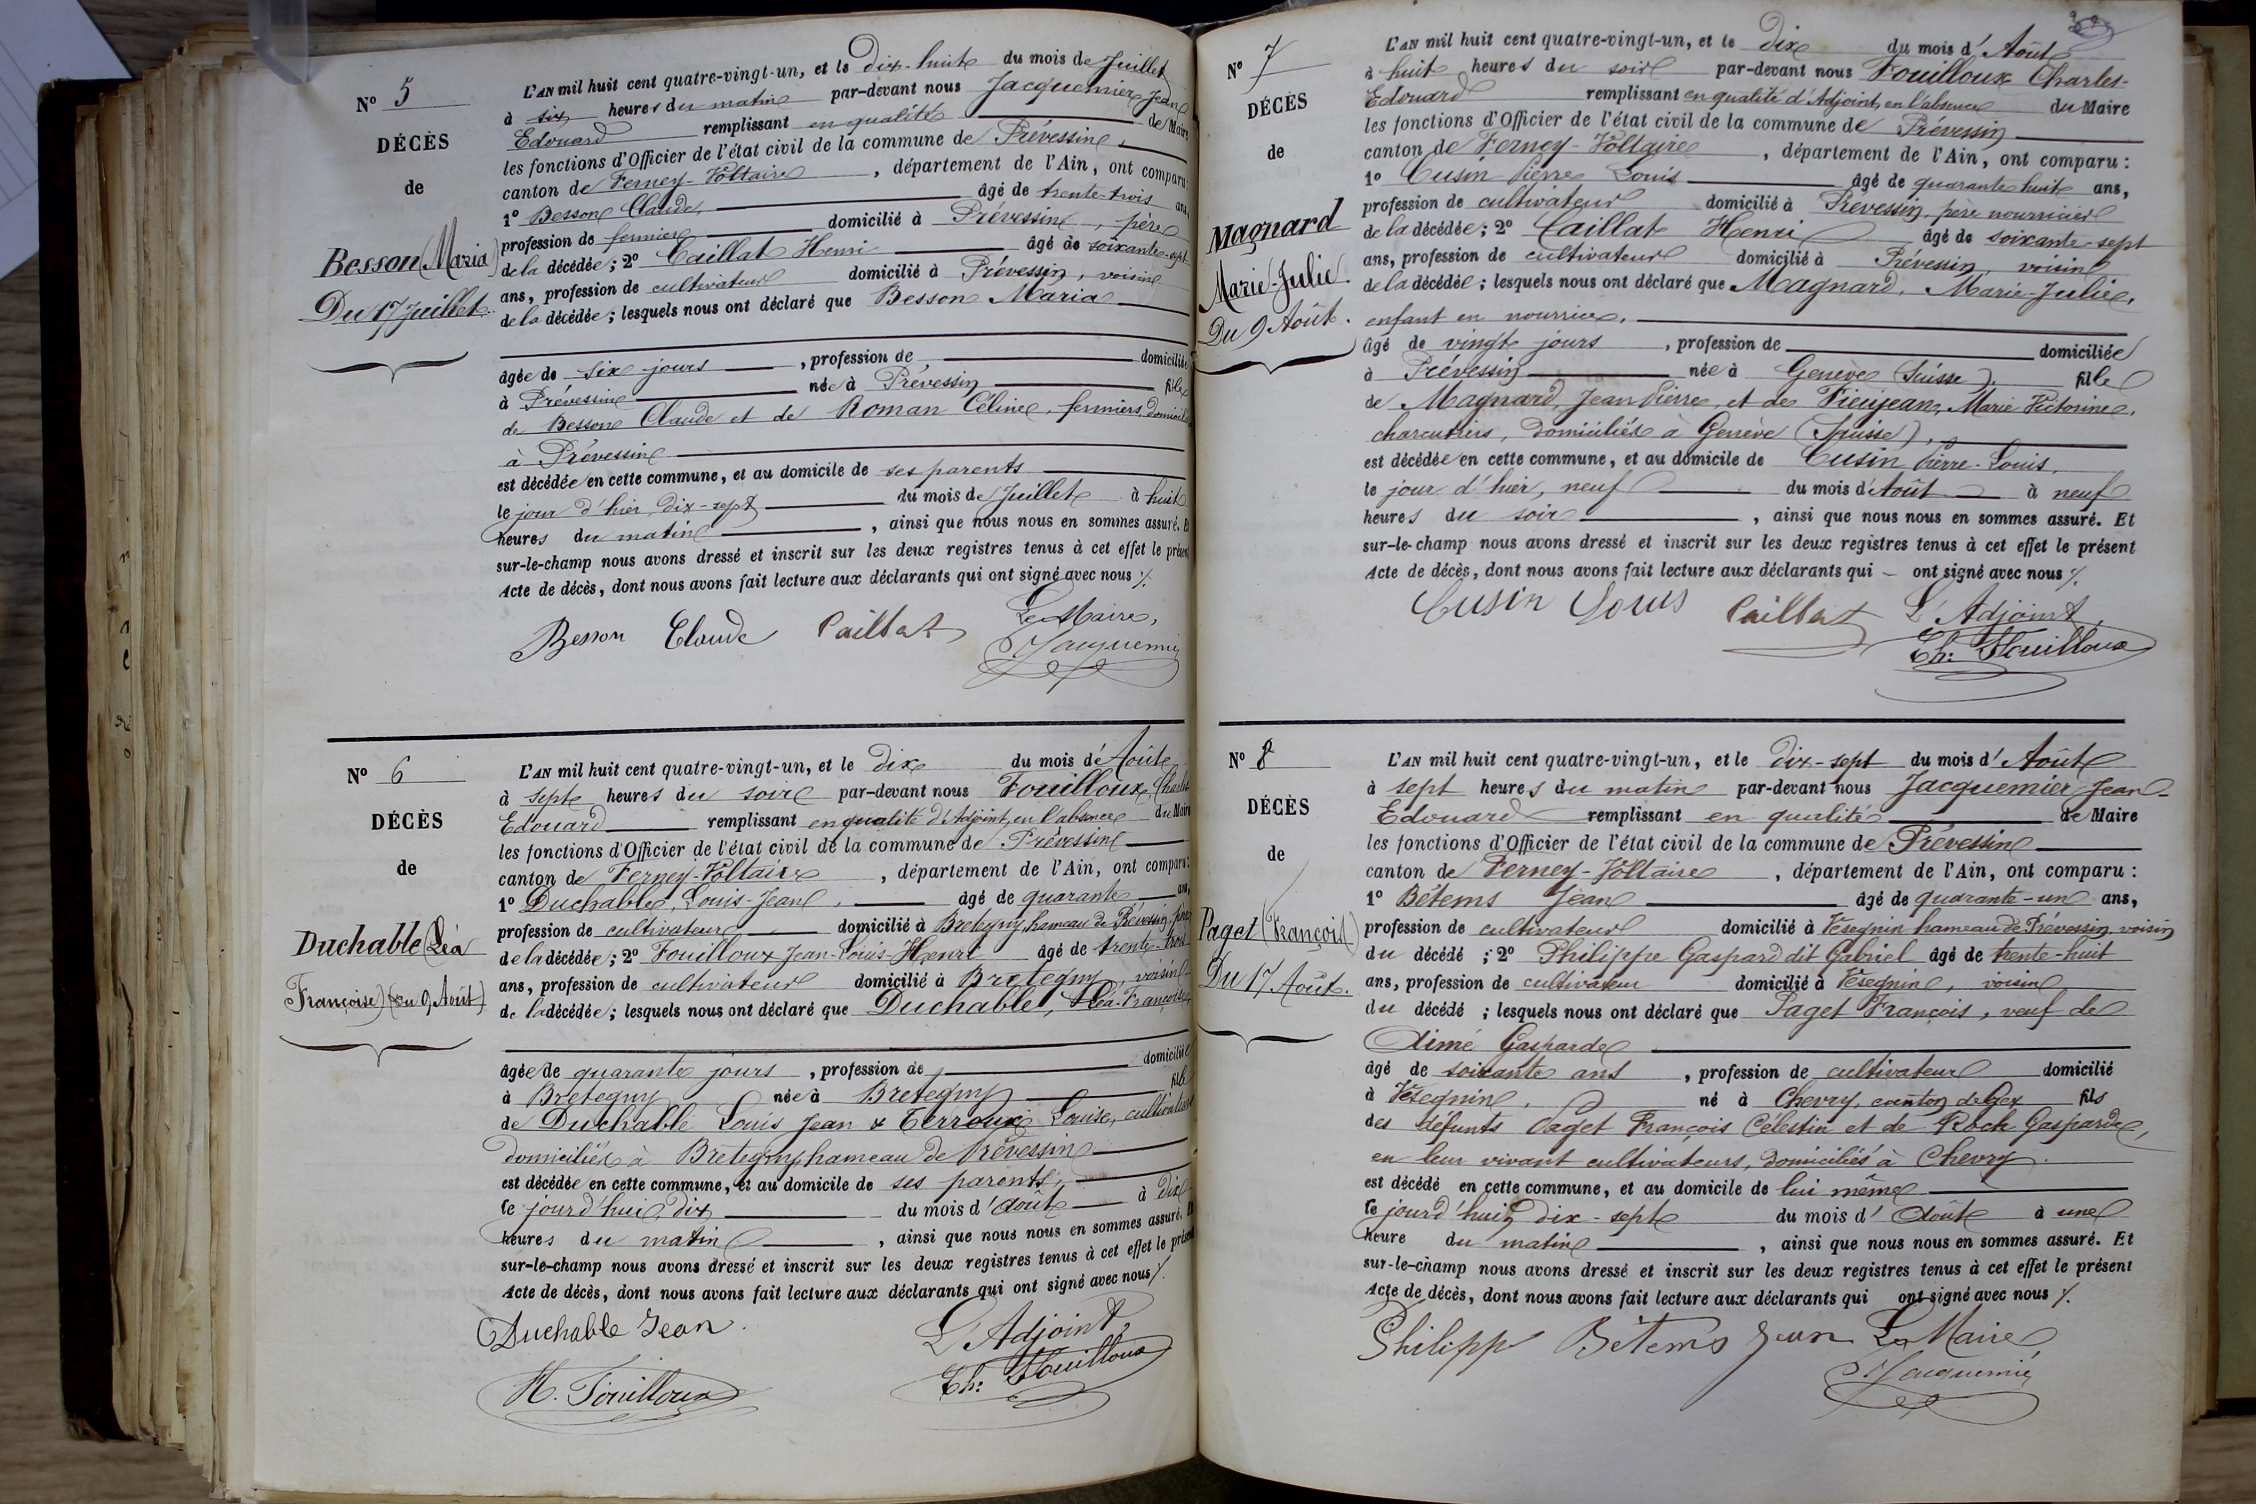 Nº 5
DÉCÈS
de
Besson (Maria)
Du 17 Juillet.
L'AN mil huit cent quatre-vingt-un, et le Dix-huit du mois de Juillet
à six heures du matin par-devant nous Jacquemier Jean
Edouard remplissant en qualité de Maire
les fonctions d'Officier de l'état civil de la commune de Prévessin,
canton de Ferney-Voltaire, département de l'Ain, ont comparu:
1º Besson Claude, âgé de trente-trois ans,
profession de fermier domicilié à Prévessin, père
de la décédée; 2º Caillat Henri âgé de soixante-sept
ans, profession de cultivateur domicilié à Prévessin, voisin
de la décédée; lesquels nous ont déclaré que Besson Maria
âgée de six jours, profession de domiciliée
à Prévessin née à Prévessin fille
de Besson Claude et de Roman Céline, fermiers, domiciliés
à Prévessin
est décédée en cette commune, et au domicile de ses parents
le jour d'hier dix-sept du mois de Juillet à huit
heures du matin, ainsi que nous nous en sommes assuré. Et
sur-le-champ nous avons dressé et inscrit sur les deux registres tenus à cet effet le présent
Acte de décès, dont nous avons fait lecture aux déclarants qui ont signé avec nous ./.
Besson Claude Caillat Le Maire,
Jacquemier
Nº 6
DÉCÈS
de
Duchable (Léa
Françoise) (Du 9 Août)
L'AN mil huit cent quatre-vingt-un, et le dix du mois d'Août
à sept heures du soir par-devant nous Fouilloux Charles
Edouard remplissant en qualité d'Adjoint, en l'absence du Maire
les fonctions d'Officier de l'état civil de la commune de Prévessin
canton de Ferney-Voltaire, département de l'Ain, ont comparu:
1º Duchable, Louis-Jean, âgé de quarante ans,
profession de cultivateur domicilié à Bretegny hameau de Prévessin, père
de la décédée; 2º Fouilloux Jean-Louis-Henri âgé de trente-trois
ans, profession de cultivateur domicilié à Bretegny, voisin
de la décédée; lesquels nous ont déclaré que Duchable, Léa-Françoise,
âgée de quarante jours, profession de domiciliée
à Bretegny née à Bretegny fille
de Duchable Louis Jean & Terroux Louise, cultivateurs
domiciliés à Bretegny hameau de Prévessin
est décédée en cette commune, et au domicile de ses parents,
le jour d'hui, dix du mois d'août à dix
heures du matin, ainsi que nous nous en sommes assuré. Et
sur-le-champ nous avons dressé et inscrit sur les deux registres tenus à cet effet le présent
Acte de décès, dont nous avons fait lecture aux déclarants qui ont signé avec nous ./.
Duchable Jean. L'Adjoint,
H. Fouilloux Ch: Fouilloux
Nº 7
DÉCÈS
de
Magnard
Marie-Julie
Du 9 Août.
L'AN mil huit cent quatre-vingt-un, et le dix du mois d'Août
à huit heures du soir par-devant nous Fouilloux Charles-
Edouard remplissant en qualité d'Adjoint, en l'absence du Maire
les fonctions d'Officier de l'état civil de la commune de Prévessin
canton de Ferney-Voltaire, département de l'Ain, ont comparu:
1º Cusin Pierre Louis âgé de quarante huit ans,
profession de cultivateur domicilié à Prévessin, père nourricier
de la décédée; 2º Caillat Henri âgé de soixante-sept
ans, profession de cultivateur domicilié à Prévessin, voisin
de la décédée; lesquels nous ont déclaré que Magnard, Marie-Julie,
enfant en nourrice,
âgé de vingt jours, profession de domiciliée
à Prévessin née à Genève (Suisse), fille
de Magnard, Jean Pierre, et de Fieujean, Marie Victorine,
charcutiers, domiciliés à Genève (Suisse),
est décédée en cette commune, et au domicile de Cusin Pierre-Louis,
le jour d'hier, neuf du mois d'Août à neuf
heures du soir, ainsi que nous nous en sommes assuré. Et
sur-le-champ nous avons dressé et inscrit sur les deux registres tenus à cet effet le présent
Acte de décès, dont nous avons fait lecture aux déclarants qui ont signé avec nous ./.
Cusin Louis Caillat L'Adjoint,
Ch: Fouilloux
Nº 8
DÉCÈS
de
Paget (François)
Du 17 Août.
L'AN mil huit cent quatre-vingt-un, et le dix-sept du mois d'Août
à sept heures du matin par-devant nous Jacquemier Jean-
Edouard remplissant en qualité de Maire
les fonctions d'Officier de l'état civil de la commune de Prévessin
canton de Ferney-Voltaire, département de l'Ain, ont comparu:
1º Bétems Jean âgé de quarante-un ans,
profession de cultivateur domicilié à Vésegnin hameau de Prévessin, voisin
du décédé; 2º Philippe Gaspard dit Gabriel âgé de trente-huit
ans, profession de cultivateur domicilié à Vésegnin, voisin
du décédé; lesquels nous ont déclaré que Paget François, veuf de
Aimé Gasparde
âgé de soixante ans, profession de cultivateur domicilié
à Vésegnin, né à Chevry, canton de Gex fils
des défunts Paget François Célestin et de Roch Gasparde,
en leur vivant cultivateurs, domiciliés à Chevry.
est décédé en cette commune, et au domicile de lui même
le jourd'hui, dix-sept du mois d'Août à une
heure du matin, ainsi que nous nous en sommes assuré. Et
sur-le-champ nous avons dressé et inscrit sur les deux registres tenus à cet effet le présent
Acte de décès, dont nous avons fait lecture aux déclarants qui ont signé avec nous ./.
Philipp Bétems Jean Le Maire,
Jacquemier